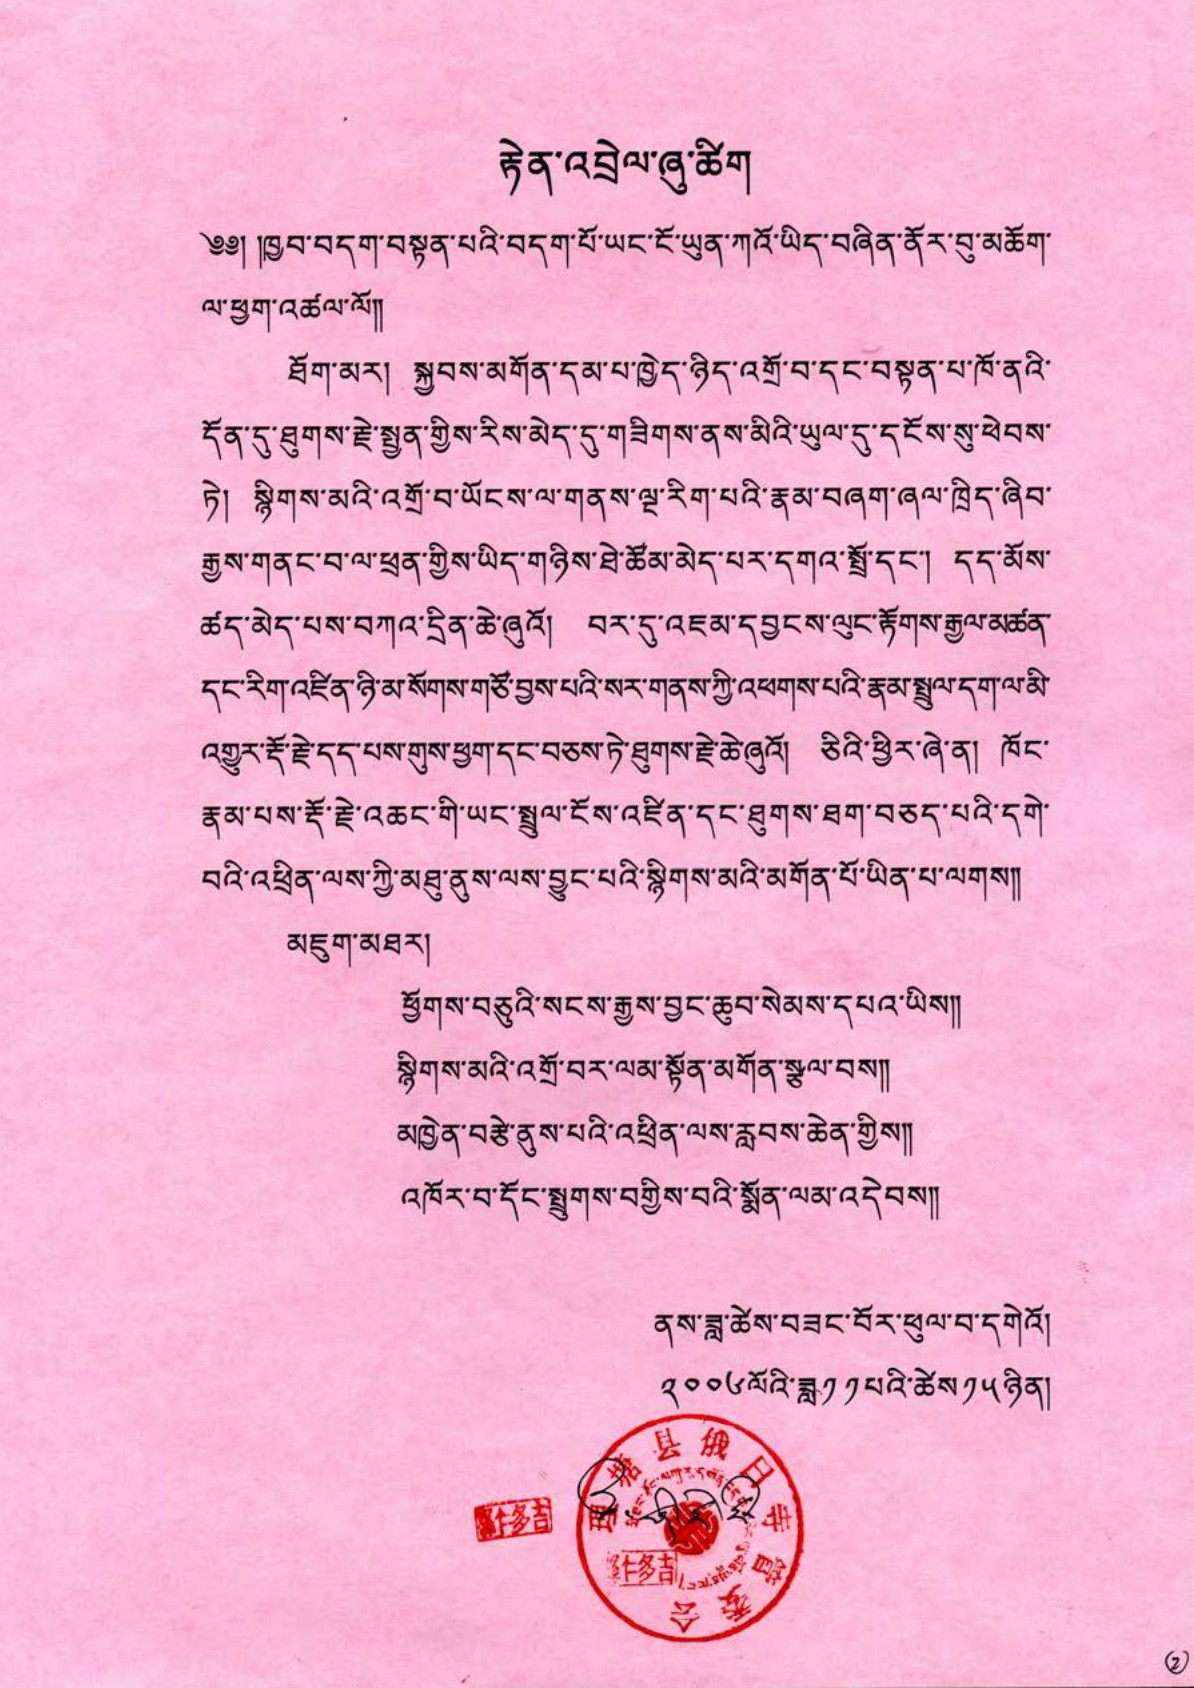 རྟེན་འབྲེལ་ཞུ་ཚིག
༄༅། །ཁྱབ་བདག་བསྟན་པའི་བདག་པོ་ཡང་ངོ་ཡུན་ཀའོ་ཡིད་བཞིན་ནོར་བུ་མཆོག་
ལ་ཕྱག་འཚལ་ལོ༎
ཐོག་མར། སྐྱབས་མགོན་དམ་པ་ཁྱེད་ཉིད་འགྲོ་བ་དང་བསྟན་པ་ཁོ་ནའི་
དོན་དུ་ཐུགས་རྗེ་སྤྱན་གྱིས་རིས་མེད་དུ་གཟིགས་ནས་མིའི་ཡུལ་དུ་དངོས་སུ་ཕེབས་
ཏེ། སྙིགས་མའི་འགྲོ་བ་ཡོངས་ལ་གནས་ལྔ་རིག་པའི་རྣམ་བཞག་ཞལ་ཁྲིད་ཞིབ་
རྒྱས་གནང་བ་ལ་ཕྲན་གྱིས་ཡིད་གཉིས་ཐེ་ཚོམ་མེད་པར་དགའ་སྤྲོ་དང་། དད་མོས་
ཚད་མེད་པས་བཀའ་དྲིན་ཆེ་ཞུའོ། བར་དུ་འཇམ་དབྱངས་ལུང་རྟོགས་རྒྱལ་མཚན་
དང་རིག་འཛིན་ཉི་མ་སོགས་གཙོ་བྱས་པའི་སར་གནས་ཀྱི་འཕགས་པའི་རྣམ་སྤྲུལ་དག་ལ་མི་
འགྱུར་རྡོ་རྗེ་དད་པས་གུས་ཕྱག་དང་བཅས་ཏེ་ཐུགས་རྗེ་ཆེ་ཞུའོ། ཅིའི་ཕྱིར་ཞེ་ན། ཁོང་
རྣམ་པས་རྡོ་རྗེ་འཆང་གི་ཡང་སྤྲུལ་ངོས་འཛིན་དང་ཐུགས་ཐག་བཅད་པའི་དགེ་
བའི་འཕྲིན་ལས་ཀྱི་མཐུ་ནུས་ལས་བྱུང་པའི་སྙིགས་མའི་མགོན་པོ་ཡིན་པ་ལགས༎
མཇུག་མཐར།
ཕྱོགས་བཅུའི་སངས་རྒྱས་བྱང་ཆུབ་སེམས་དཔའ་ཡིས༎
སྙིགས་མའི་འགྲོ་བར་ལམ་སྟོན་མགོན་སྩལ་བས༎
མཁྱེན་བརྩེ་ནུས་པའི་འཕྲིན་ལས་རླབས་ཆེན་གྱིས༎
འཁོར་བ་དོང་སྤྲུགས་བགྱིས་བའི་སྨོན་ལམ་འདེབས༎
ནས་ཟླ་ཚེས་བཟང་པོར་ཕུལ་བ་དགེའོ།
༢༠༠༦ལོའི་ཟླ༡༡པའི་ཚེས༡༥ཉིན།
理塘县俄日寺管委会
仁多吉
仁多吉
2